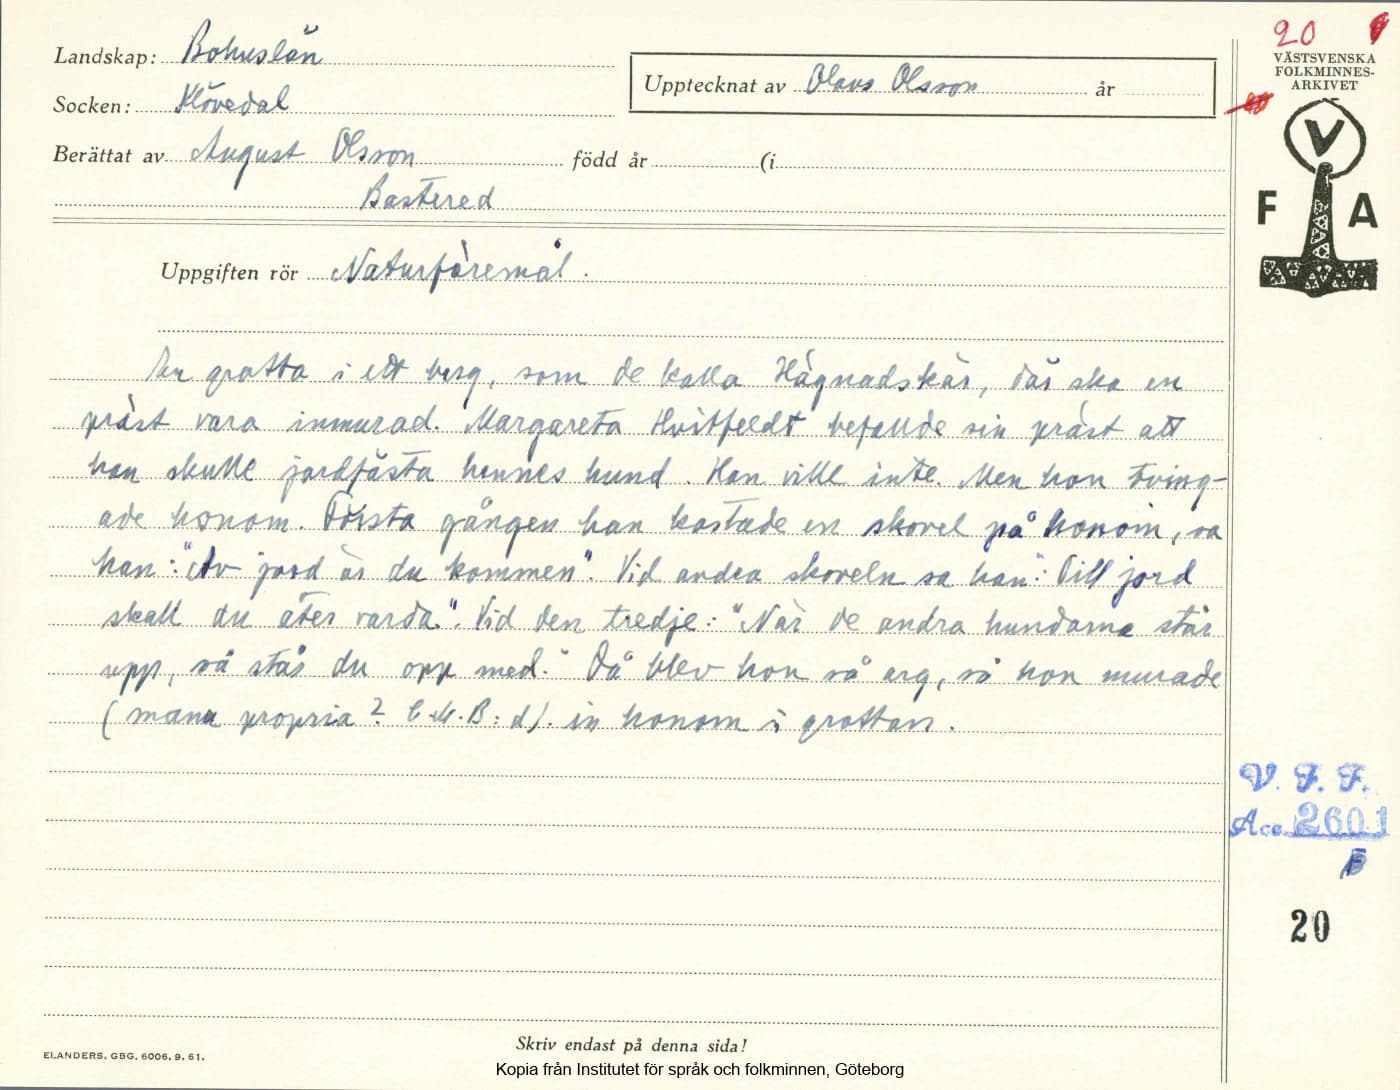 20
VÄSTSVENSKA
FOLKMINNES-
ARKIVET
V
F A
Landskap: Bohuslän
Upptecknat av Olavs Olsson år
Socken: Klövedal
Berättat av August Olsson född år (i
Bastered
Uppgiften rör Naturföremål.
En grotta i ett berg, som de kalla Hägnadskär, där ska en
präst vara inmurad. Margareta Hvitfeldt befallde sin präst att
han skulle jordfästa hennes hund. Han ville inte. Men hon tving-
ade honom. Första gången han kastade en skovel på honom, sa
han: "Av jord är du kommen". Vid andra skoveln sa han: "Till jord
skall du åter varda". Vid den tredje: "När de andra hundarna står
upp, så står du opp med." Då blev hon så arg, så hon murade
(manu propria? C.M.B: d). in honom i grottan.
V. F. F.
Acc. 2601
F
20
ELANDERS. GBG. 6006. 9. 61.
Skriv endast på denna sida!
Kopia från Institutet för språk och folkminnen, Göteborg